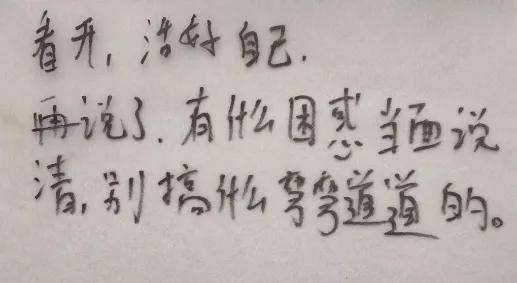 看开,活好自己.
再说了.有什么困惑当面说
清,别搞什么弯弯道道的。